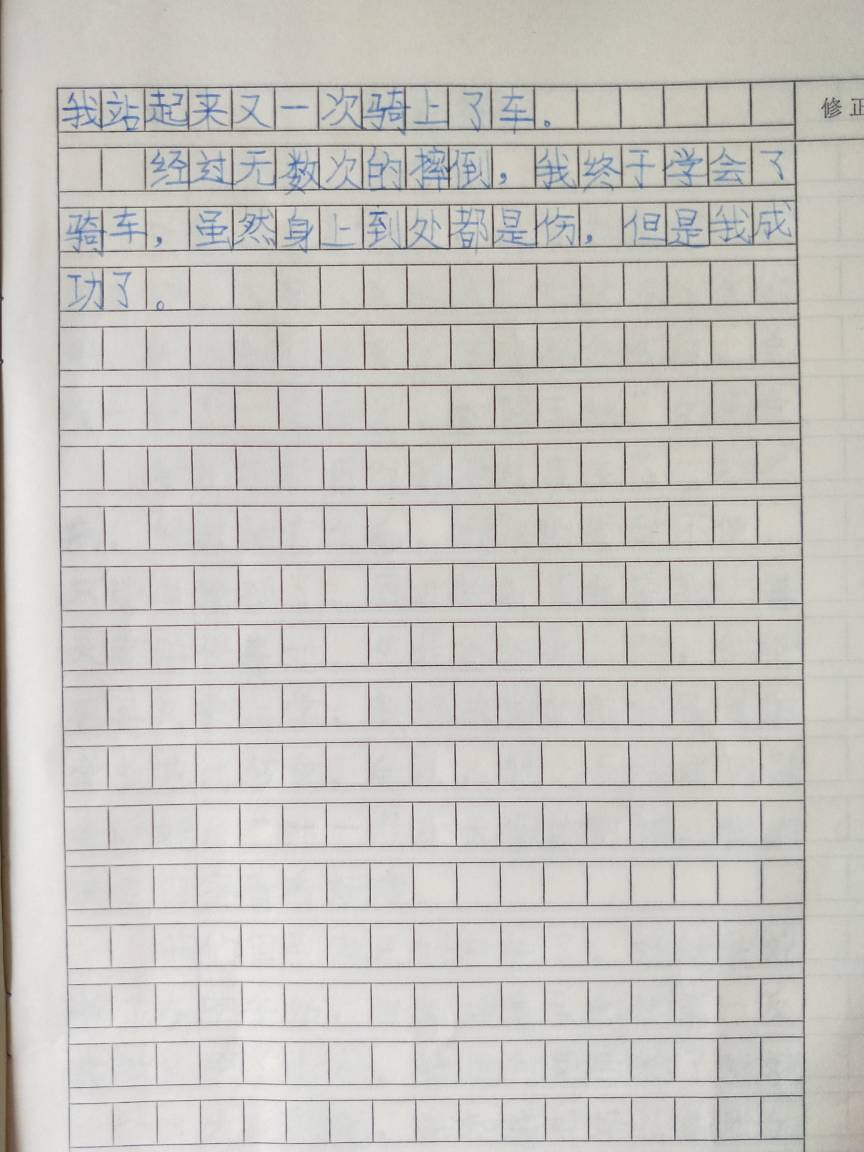 我站起来又一次骑上了车。
修正
经过无数次的摔倒，我终于学会了
骑车，虽然身上到处都是伤，但是我成
功了。